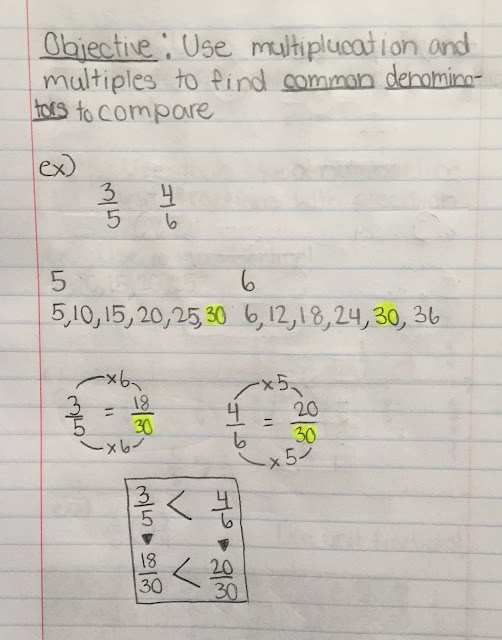 Objective: Use multiplucation and
multiples to find common denomina-
tors to compare
ex)
3/5 4/6
5 6
5,10,15,20,25,30 6,12,18,24,30,36
×6 ×5
3/5 = 18/30 4/6 = 20/30
×6 ×5
3/5 < 4/6
18/30 < 20/30